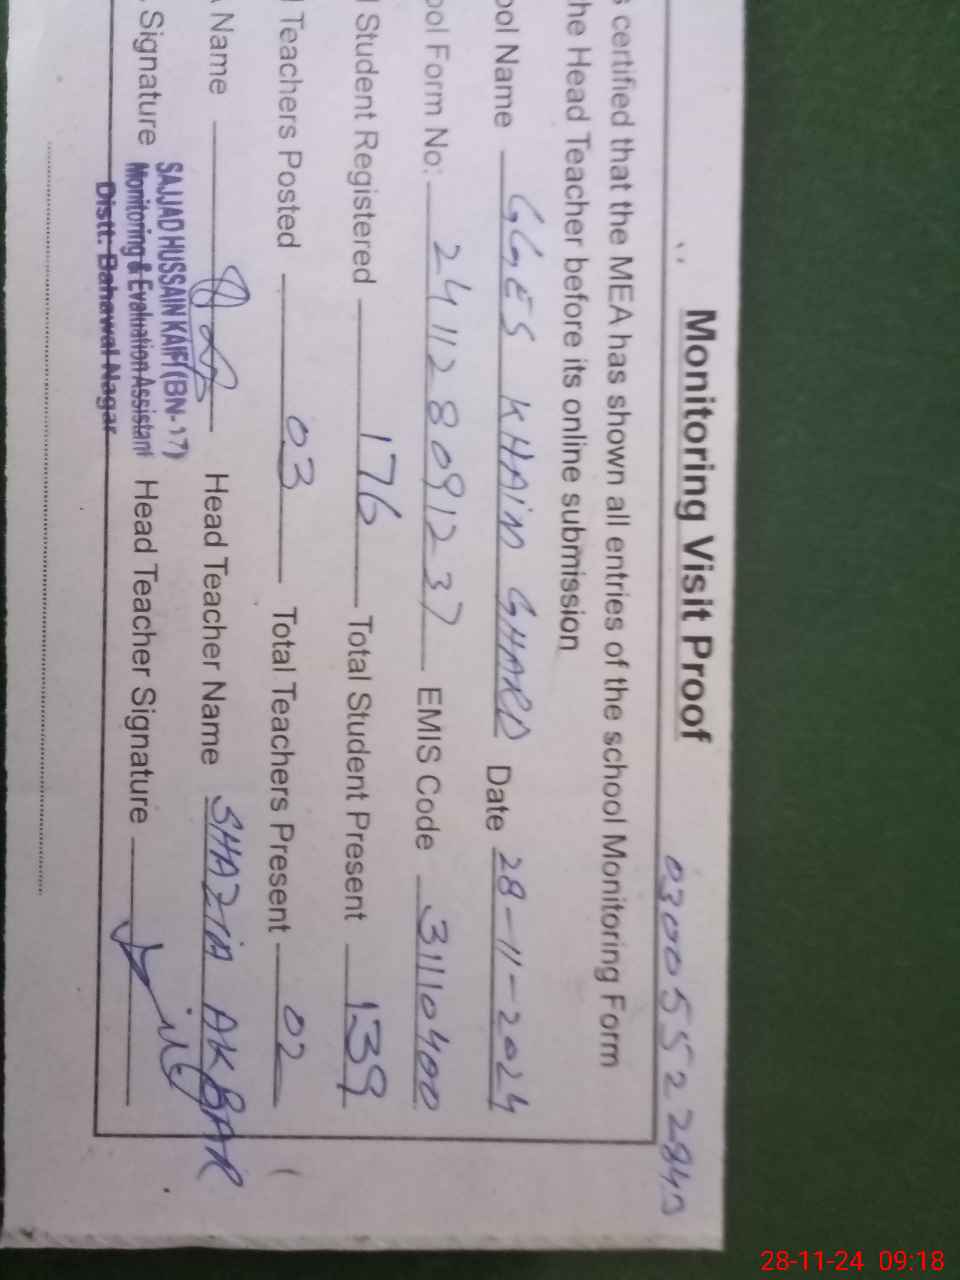 Monitoring Visit Proof
certified that the MEA has shown all entries of the school Monitoring Form
he Head Teacher before its online submission
ool Name GGES KHAIM GHARD Date 28-11-2024
ool Form No: 241128091237 EMIS Code 31110400
l Student Registered 176 Total Student Present 139
l Teachers Posted 03 Total Teachers Present 02
A Name Head Teacher Name SHAZIA AKBAR
Signature SAJJAD HUSSAIN KAIFI (BN-17) Head Teacher Signature
Monitoring & Evaluation Assistant
Distt. Bahawal Nagar
28-11-24 09:18